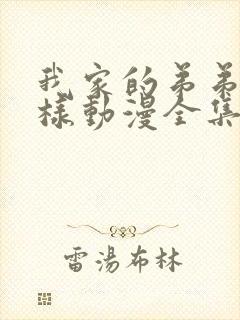 我家的弟弟
樣動漫全集
雷湯布林